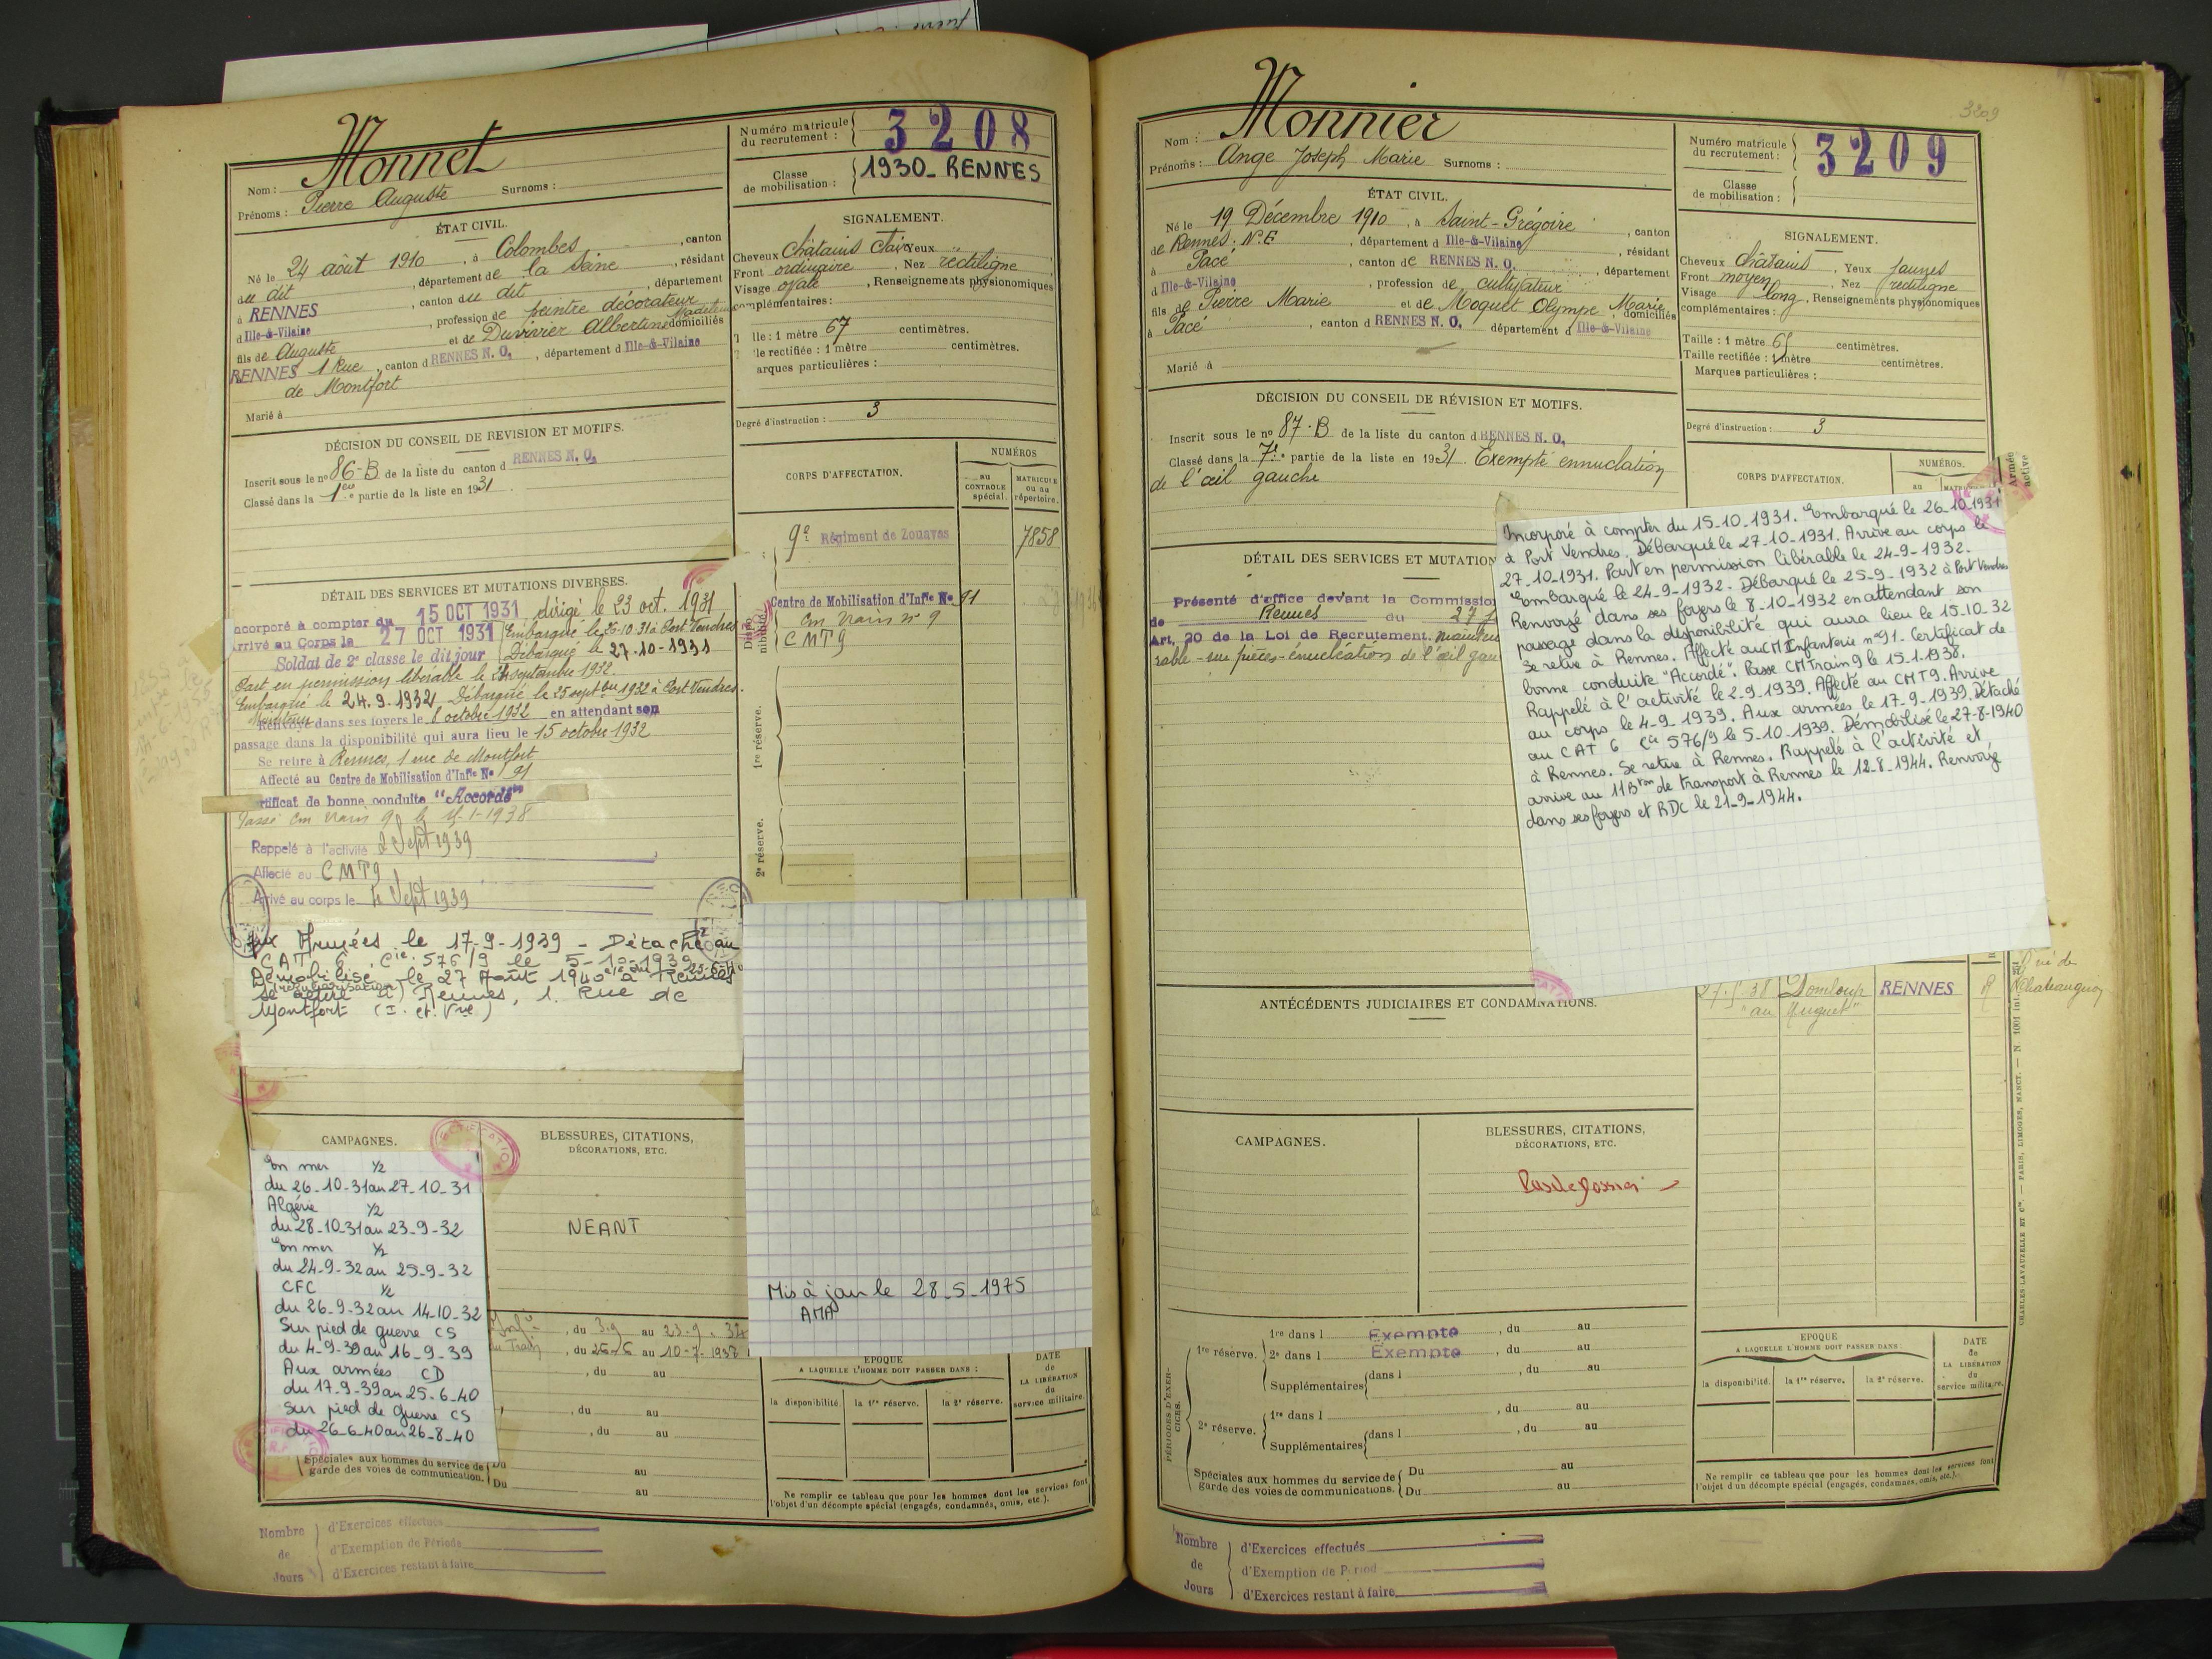 Monnet
Nom :
Prénoms : Pierre Auguste Surnoms :
Numéro matricule du recrutement : 3208
Classe de mobilisation : 1930_ RENNES
ÉTAT CIVIL.
Né le 24 août 1910, à Colombes, canton
du dit, département de la Seine, résidant
à RENNES, canton du dit, département
d Ille-&-Vilaine, profession de peintre décorateur
fils de Auguste et de Duvivier Albertine Madeleine domiciliés
RENNES 1 Rue, canton d RENNES N. O., département d Ille-&-Vilaine
de Montfort
Marié à
SIGNALEMENT.
Cheveux châtains clair Yeux
Front ordinaire, Nez rectiligne
Visage ovale, Renseignements physionomiques
complémentaires :
lle : 1 mètre 67 centimètres.
le rectifiée : 1 mètre centimètres.
arques particulières :
Degré d'instruction : 3
DÉCISION DU CONSEIL DE REVISION ET MOTIFS.
Inscrit sous le no 86-B de la liste du canton d RENNES N. O.
Classé dans la 1ere partie de la liste en 1931.
CORPS D'AFFECTATION.
NUMÉROS
au CONTROLE spécial.
MATRICULE ou au répertoire.
9e Régiment de Zouaves 7858
Centre de Mobilisation d'Infie No 91
Cm train no 9
CMT9
1re réserve.
2e réserve.
DÉTAIL DES SERVICES ET MUTATIONS DIVERSES.
ncorporé à compter du 15 OCT 1931, dirigé le 23 oct. 1931
Arrivé au Corps le 27 OCT 1931 Embarqué le 26-10-31 à Port Vendres
Soldat de 2e classe le dit jour Débarqué le 27.10-1931
Part en permission libérable le 24 septembre 1932.
Embarqué le 24.9.1932. Débarqué le 25 septbre 1932 à Port Vendres.
Renvoyé dans ses foyers le 8 octobre 1932 en attendant son
passage dans la disponibilité qui aura lieu le 15 octobre 1932
Se retire à Rennes, 1 rue de Montfort
Affecté au Centre de Mobilisation d'Infie No 91
rtificat de bonne conduite "Accordé"
Passé Cm train 9 le 15-1-1938
Rappelé à l'activité 2 Sept 1939
Affecté au CMT9
Arrivé au corps le 4 Sept 1939
Aux Armées le 17-9-1939 - Détaché au
CAT 6 Cie 576/9 le 5-10-1939
Démobilisé le 27 Août 1940 à Rennes
se retire à Rennes, 1. Rue de
Montfort (I. et Vne)
CAMPAGNES.
En mer 1/2
du 26_10_31 au 27_10_31
Algérie 1/2
du 28_10_31 au 23_9_32
En mer 1/2
du 24_9_32 au 25_9_32
CFC 1/2
du 26_9_32 au 14_10_32
Sur pied de guerre CS
du 4_9_39 au 16_9_39
Aux armées CD
du 17_9_39 au 25_6_40
Sur pied de guerre CS
du 26_6_40 au 26_8_40
BLESSURES, CITATIONS,
DÉCORATIONS, ETC.
NEANT
, du 3.9 au 23.9.
du Train, du au 10-7-
, du au
, du au
, du au
Spéciales aux hommes du service de garde des voies de communication. Du au
Du au
Mis à jour le 28_5_1975
AMA
EPOQUE
A LAQUELLE L'HOMME DOIT PASSER DANS :
la disponibilité. la 1re réserve. la 2e réserve.
DATE de LA LIBÉRATION du service militaire.
Ne remplir ce tableau que pour les hommes dont les services font
l'objet d'un décompte spécial (engagés, condamnés, omis, etc.).
Nombre de Jours
d'Exercices effectués
d'Exemption de Période
d'Exercices restant à faire
3209
Nom : Monnier
Prénoms : Ange Joseph Marie Surnoms :
Numéro matricule du recrutement : 3209
Classe de mobilisation :
ÉTAT CIVIL.
Né le 19 Décembre 1910, à Saint-Grégoire, canton
de Rennes. N.E, département d Ille-&-Vilaine, résidant
à Pacé, canton de RENNES N. O., département
d Ille-&-Vilaine, profession de cultivateur
fils de Pierre Marie et de Moquet Olympe Marie, domiciliés
à Pacé, canton d RENNES N. O. département d Ille-&-Vilaine
Marié à
SIGNALEMENT.
Cheveux châtains, Yeux jaunes
Front moyen, Nez rectiligne
Visage long, Renseignements physionomiques
complémentaires :
Taille : 1 mètre 65 centimètres.
Taille rectifiée : 1 mètre centimètres.
Marques particulières :
Degré d'instruction : 3
DÉCISION DU CONSEIL DE RÉVISION ET MOTIFS.
Inscrit sous le no 87-B de la liste du canton d RENNES N. O.
Classé dans la 7e partie de la liste en 1931. Exempté ennucléation
de l'œil gauche
CORPS D'AFFECTATION.
NUMÉROS.
au
Armée active
DÉTAIL DES SERVICES ET MUTATION
Présenté d'office devant la Commissio
de Rennes du 27
Art. 20 de la Loi de Recrutement.
rable - sur pièces - énucléation de l'œil gau
Incorporé à compter du 15_10_1931. Embarqué le 26_10_1931
à Port Vendres. Débarqué le 27_10_1931. Arrivé au corps le
27_10_1931. Part en permission libérable le 24_9_1932.
Embarqué le 24_9_1932. Débarqué le 25_9_1932 à Port Vendres
Renvoyé dans ses foyers le 8_10_1932 en attendant son
passage dans la disponibilité qui aura lieu le 15.10.32
Se retire à Rennes. Affecté au CM Infanterie n°91. Certificat de
bonne conduite "Accordé". Passe CM Train 9 le 15.1.1938.
Rappelé à l'activité le 2_9_1939. Affecté au CMT9. Arrive
au corps le 4_9_1939. Aux armées le 17_9_1939. Détaché
au CAT 6 Cie 576/9 le 5_10_1939. Démobilisé le 27_8_1940
à Rennes. Se retire à Rennes. Rappelé à l'activité et
arrive au 11 Bton de transport à Rennes le 12_8_1944. Renvoyé
dans ses foyers et RDC le 21_9_1944.
ANTÉCÉDENTS JUDICIAIRES ET CONDAMNATIONS.
38 Domloup RENNES R
"au Muguet"
CAMPAGNES.
BLESSURES, CITATIONS,
DÉCORATIONS, ETC.
Pas de dossier
PÉRIODES D'EXERCICES.
1re réserve.
1re dans l Exempte, du au
2e dans l Exempte, du au
Supplémentaires dans l, du au
2e réserve.
1re dans l, du au
Supplémentaires dans l, du au
Spéciales aux hommes du service de garde des voies de communications. Du au
Du au
EPOQUE
A LAQUELLE L'HOMME DOIT PASSER DANS :
la disponibilité. la 1re réserve. la 2e réserve.
DATE de LA LIBÉRATION du service militaire.
Ne remplir ce tableau que pour les hommes dont les services font
l'objet d'un décompte spécial (engagés, condamnés, omis, etc.).
CHARLES-LAVAUZELLE ET Cie. — PARIS, LIMOGES, NANCY. — N 1001
Nombre de Jours
d'Exercices effectués
d'Exemption de Périod
d'Exercices restant à faire